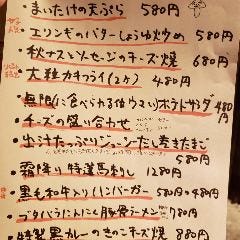 まいたけの天ぷら 580円
エリンギのバターしょうゆ炒め 580円
秋ナスとソーセージのチーズ焼 680円
大粒カキフライ(2ケ) 480円
無限に食べられる(塩ウマ)ポテトサラダ 480円
チーズの盛り合わせ
出汁たっぷりジューシーだし巻きたまご 580円
霜降り特選馬刺し 1280円
黒毛和牛入りハンバーガー 580円
ブタバラにんにく豚骨ラーメン 780円
特製黒カレーのきのこチーズ焼 880円